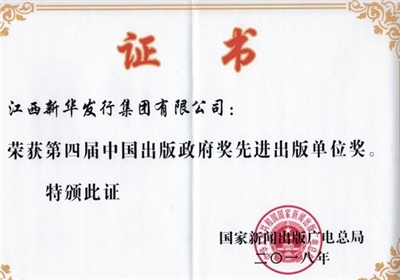 证书
江西新华发行集团有限公司：
荣获第四届中国出版政府奖先进出版单位奖。
特颁此证
国家新闻出版广电总局
二〇一八年